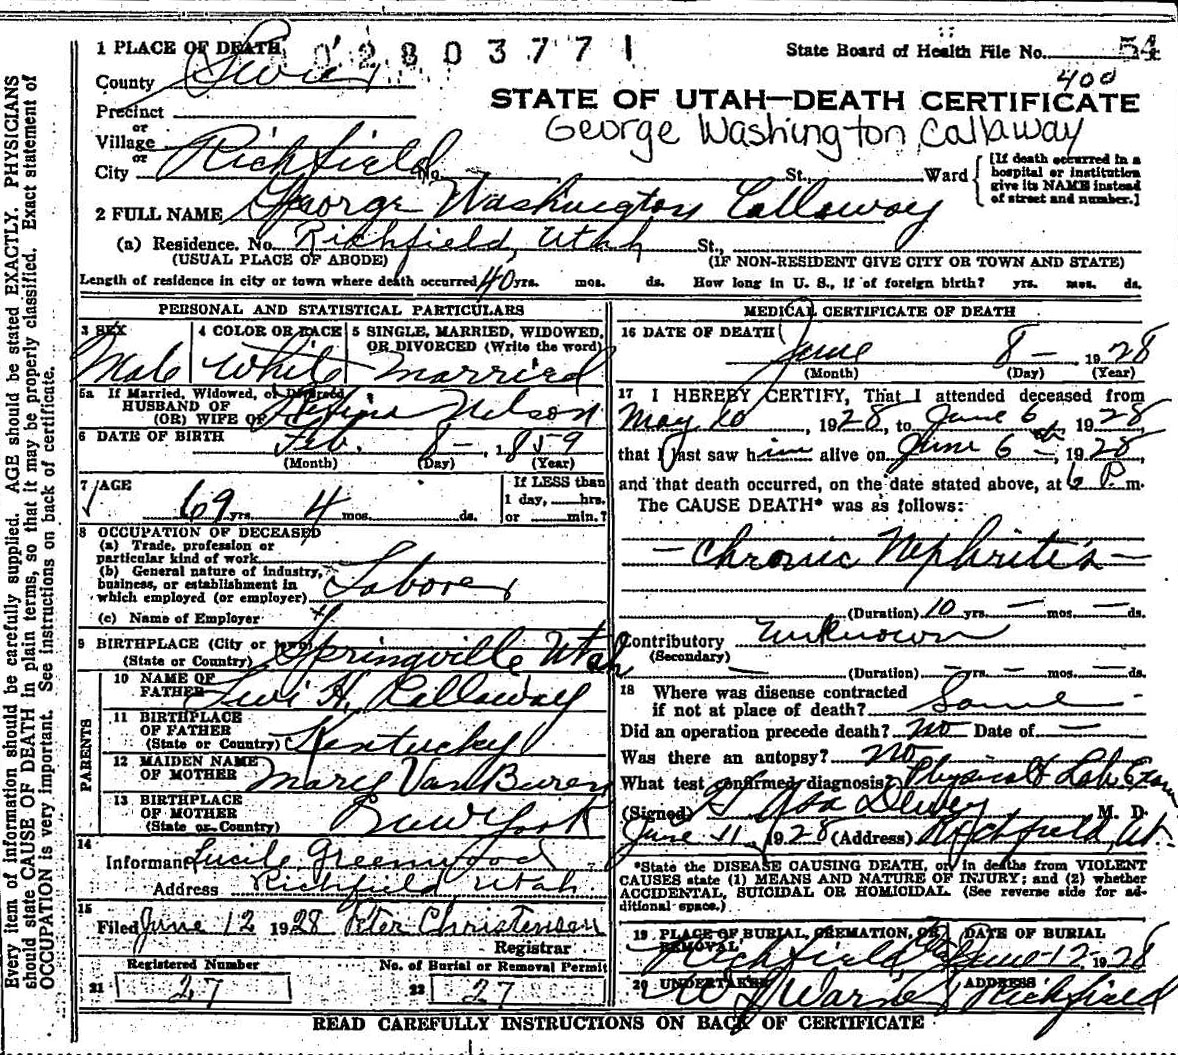 1 PLACE OF DEATH
0 2 8 0 3 7 7 1
State Board of Health File No. 54
400
County Sevier
Precinct
or
Village
or
City Richfield No. St., Ward
STATE OF UTAH—DEATH CERTIFICATE
George Washington Callaway
[If death occurred in a
hospital or institution
give its NAME instead
of street and number.]
2 FULL NAME George Washington Calloway
(a) Residence. No. Richfield, Utah St.,
(USUAL PLACE OF ABODE) (IF NON-RESIDENT GIVE CITY OR TOWN AND STATE)
Length of residence in city or town where death occurred 40 yrs. mos. ds. How long in U. S., if of foreign birth? yrs. mos. ds.
PERSONAL AND STATISTICAL PARTICULARS
3 SEX
Male
4 COLOR OR RACE
White
5 SINGLE, MARRIED, WIDOWED,
OR DIVORCED (Write the word)
Married
5a If Married, Widowed, or Divorced
HUSBAND OF
(OR) WIFE OF Nelson
6 DATE OF BIRTH Feb. 8 — , 1859
(Month) (Day) (Year)
7 AGE
69 yrs. 4 mos. ds.
If LESS than
1 day, hrs.
or min.?
8 OCCUPATION OF DECEASED
(a) Trade, profession or
particular kind of work
(b) General nature of industry,
business, or establishment in
which employed (or employer)
Laborer
(c) Name of Employer
9 BIRTHPLACE (City or town)
(State or Country) Springville Utah
PARENTS
10 NAME OF
FATHER Levi H. Callaway
11 BIRTHPLACE
OF FATHER
(State or Country) Kentucky
12 MAIDEN NAME
OF MOTHER Mary Van Buren
13 BIRTHPLACE
OF MOTHER
(State or Country) New York
14
Informant Lucile Greenwood
Address Richfield Utah
15
Filed June 12 1928 Peter Christensen
Registrar
Registered Number No. of Burial or Removal Permit
21 27 22 27
MEDICAL CERTIFICATE OF DEATH
16 DATE OF DEATH
June 8 — , 1928
(Month) (Day) (Year)
17 I HEREBY CERTIFY, That I attended deceased from
May 10, 1928, to June 6, 1928,
that I last saw him alive on June 6th, 1928,
and that death occurred, on the date stated above, at 6 P. m.
The CAUSE DEATH* was as follows:
— Chronic Nephritis —
(Duration) 10 yrs. — mos. — ds.
Contributory Unknown
(Secondary)
(Duration) — yrs. — mos. — ds.
18 Where was disease contracted
if not at place of death? Same
Did an operation precede death? No Date of —
Was there an autopsy? No
What test confirmed diagnosis? Physical & Lab Exam
(Signed) Asa Dewey M. D.
June 11, 1928 (Address) Richfield, Ut.
*State the DISEASE CAUSING DEATH, or, in deaths from VIOLENT
CAUSES state (1) MEANS AND NATURE OF INJURY; and (2) whether
ACCIDENTAL, SUICIDAL OR HOMICIDAL. (See reverse side for ad-
ditional space.)
19 PLACE OF BURIAL, CREMATION, OR
REMOVAL
Richfield Utah
DATE OF BURIAL
June 12 1928
20 UNDERTAKER
ADDRESS
Richfield
READ CAREFULLY INSTRUCTIONS ON BACK OF CERTIFICATE
Every item of information should be carefully supplied. AGE should be stated EXACTLY. PHYSICIANS
should state CAUSE OF DEATH in plain terms, so that it may be properly classified. Exact statement of
OCCUPATION is very important. See instructions on back of certificate.